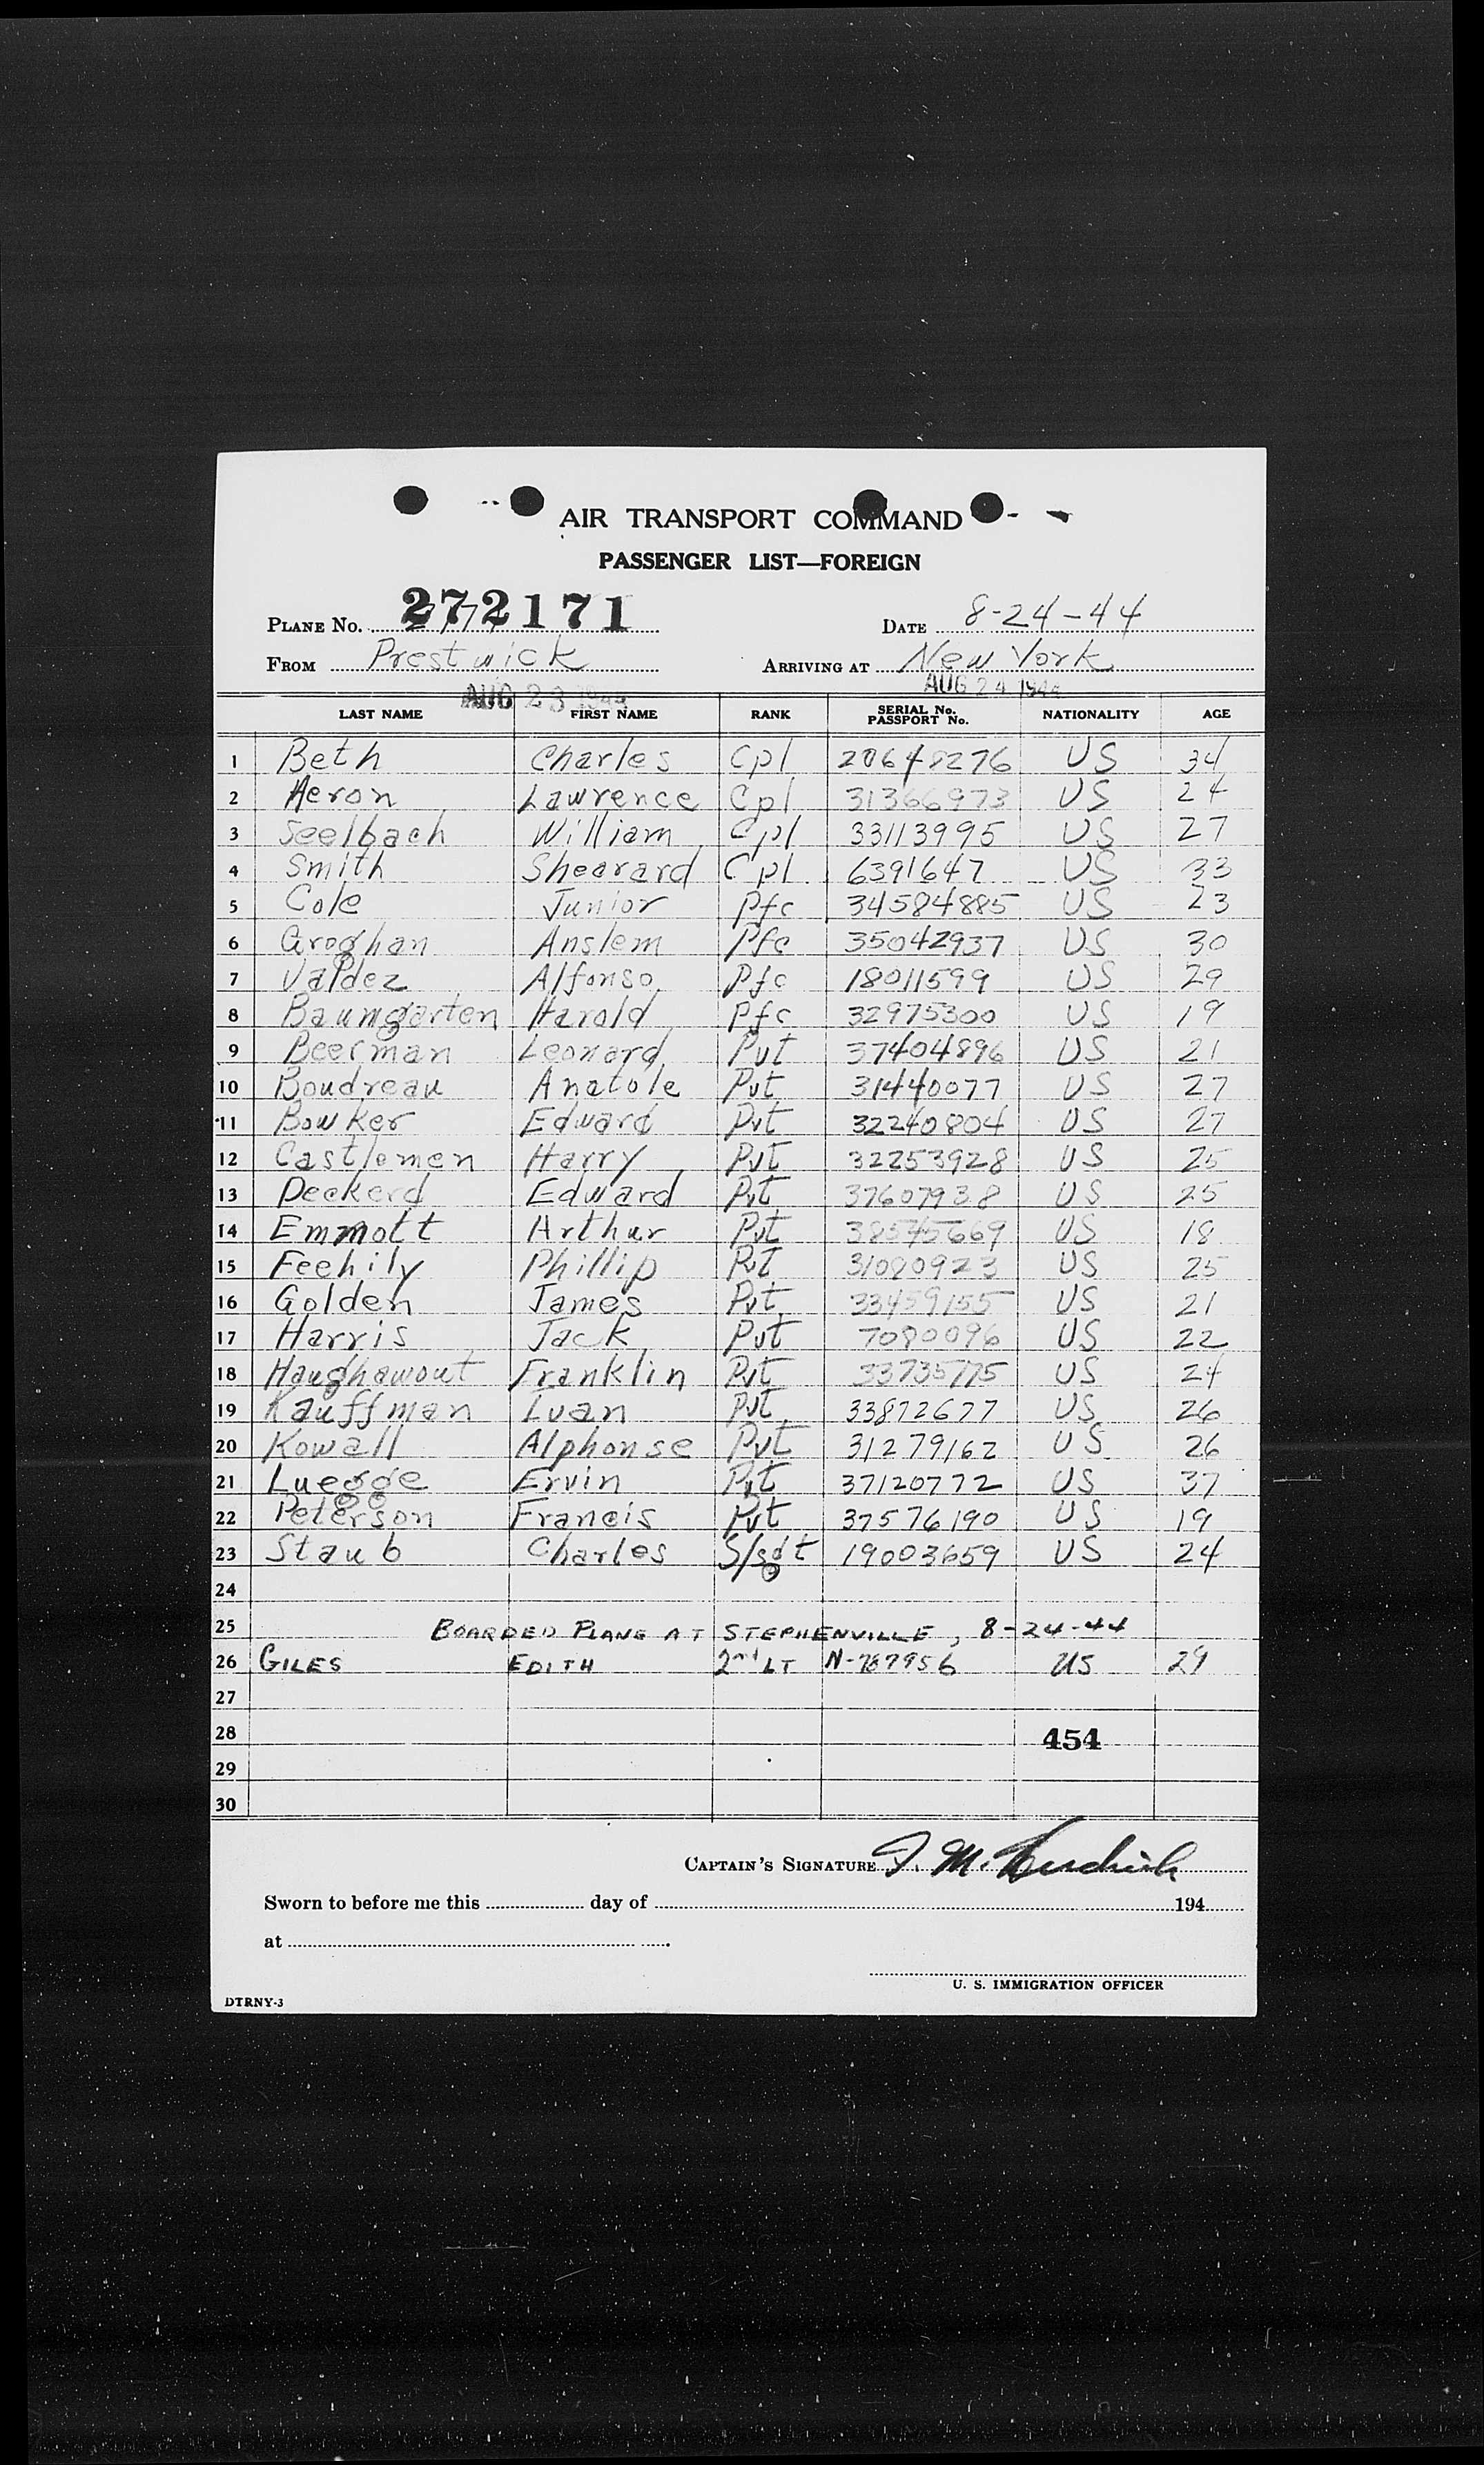 AIR TRANSPORT COMMAND
PASSENGER LIST—FOREIGN
PLANE NO. 272171 DATE 8-24-44
FROM Prestwick ARRIVING AT New York
AUG 23 1944 AUG 24 1944
LAST NAME FIRST NAME RANK SERIAL No. PASSPORT No. NATIONALITY AGE
1 Beth Charles Cpl 20648276 US 34
2 Heron Lawrence Cpl 31366973 US 24
3 Seelbach William Cpl 33113995 US 27
4 Smith Shearard Cpl 6391647 US 33
5 Cole Junior Pfc 34584885 US 23
6 Groghan Anslem Pfc 35042937 US 30
7 Valdez Alfonso Pfc 18011599 US 29
8 Baumgarten Harold Pfc 32975300 US 19
9 Beerman Leonard Pvt 37404896 US 21
10 Boudreau Anatole Pvt 31440077 US 27
11 Bowker Edward Pvt 32240804 US 27
12 Castlemen Harry Pvt 32253928 US 25
13 Deckerd Edward Pvt 37607938 US 25
14 Emmott Arthur Pvt 38545669 US 18
15 Feehily Phillip Pvt 31080923 US 25
16 Golden James Pvt 33459155 US 21
17 Harris Jack Pvt 7080096 US 22
18 Haughawout Franklin Pvt 33735775 US 24
19 Kauffman Ivan Pvt 33872677 US 26
20 Kowall Alphonse Pvt 31279162 US 26
21 Luegge Ervin Pvt 37120772 US 37
22 Peterson Francis Pvt 37576190 US 19
23 Staub Charles S/sgt 19003659 US 24
24
25 BOARDED PLANE AT STEPHENVILLE, 8-24-44
26 GILES EDITH 2nd LT N-787956 US 29
27
28 454
29
30
CAPTAIN'S SIGNATURE
Sworn to before me this day of 194
at
U. S. IMMIGRATION OFFICER
DTRNY-3